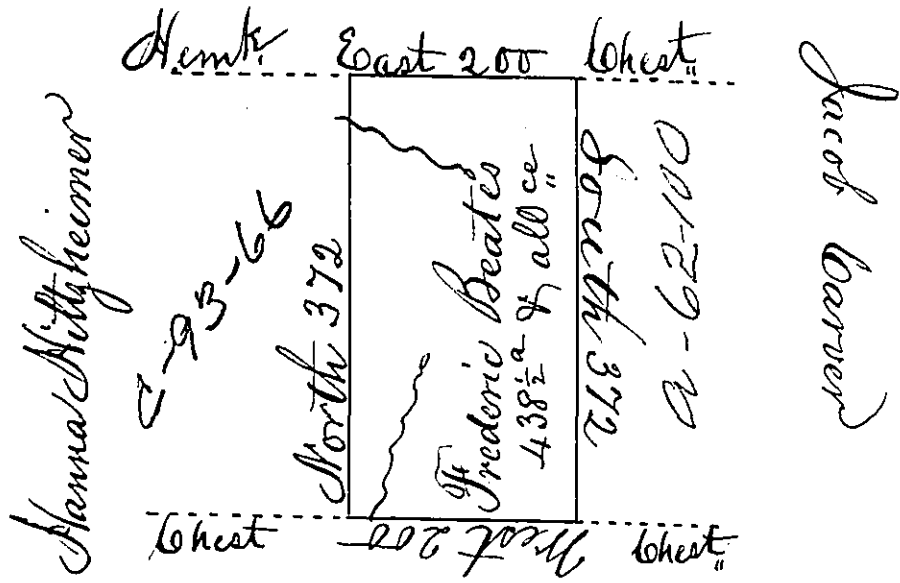 Hemk. East 200 Chest,,
Hanna Nittzheimer
C-93-66
North 372
Frederic Beates
438½ a & all ce
South 372
Jacob Carver
Chest West 200 Chest,,